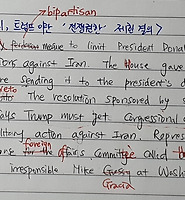 bipartisan
, 트럼프 이란 '전쟁권한' 제한 결의?
to limit President Donal
ions against Iran. The House gave
ore sending it to the president's d
The resolution sponsored by
ays Trump must get Congressional
litary action against Iran. Repres
foreign
one for affairs Committee called th
irresponsible Mike
Gracia
at Wash